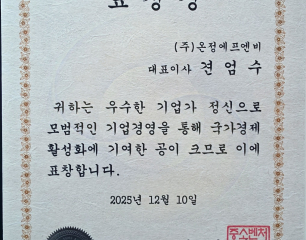 표창장
(주)온정에프엔비
대표이사 견엄수
귀하는 우수한 기업가 정신으로
모범적인 기업경영을 통해 국가경제
활성화에 기여한 공이 크므로 이에
표창합니다.
2025년 12월 10일